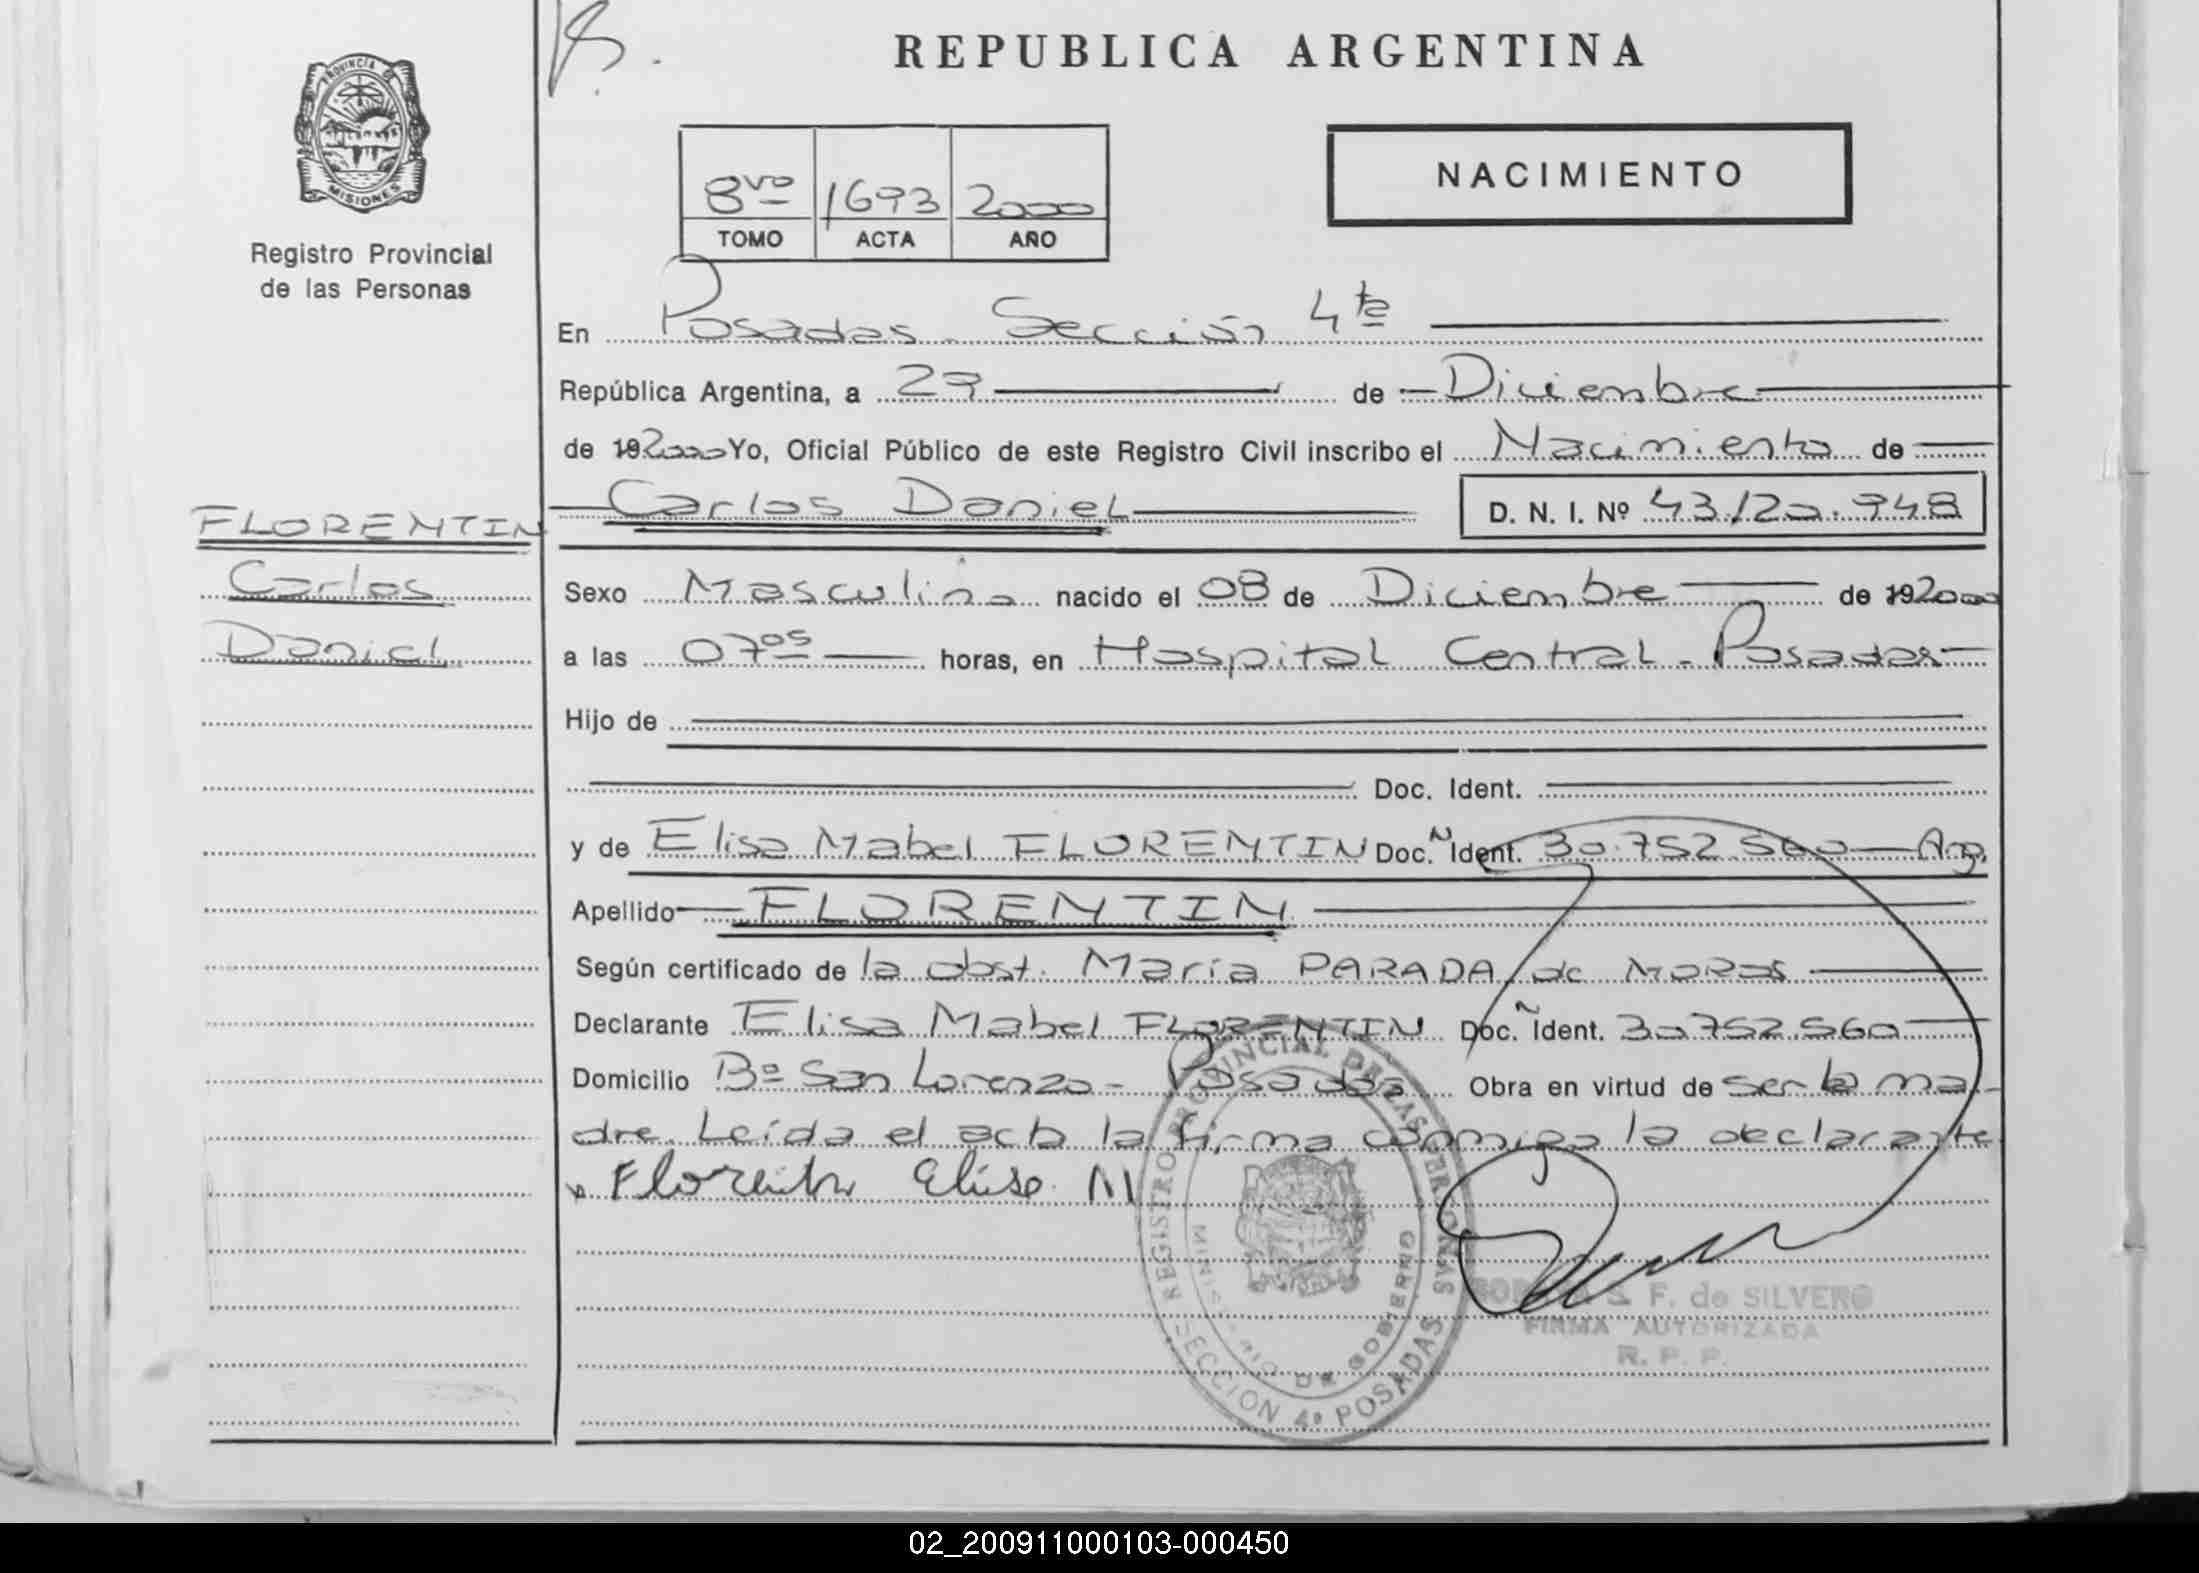 REPUBLICA ARGENTINA
PROVINCIA DE MISIONES
Registro Provincial
de las Personas
NACIMIENTO
8vo 1693 2000
TOMO ACTA AÑO
En Posadas - Sección 4ta
República Argentina, a 29 de Diciembre
de 192000 Yo, Oficial Público de este Registro Civil inscribo el Nacimiento de
Carlos Daniel D. N. I. Nº 43.120.948
FLORENTIN
Carlos
Daniel
Sexo Masculino nacido el 08 de Diciembre de 192000
a las 07 05 horas, en Hospital Central - Posadas
Hijo de
Doc. Ident.
y de Elisa Mabel FLORENTIN Doc. N Ident. 30.752.560 - Arg.
Apellido FLORENTIN
Según certificado de la obst. María PARADA de MORAS
Declarante Elisa Mabel FLORENTIN Doc. Ident. 30.752.560
Domicilio Bº San Lorenzo - Posadas Obra en virtud de ser la ma-
dre. Leída el acta la firma conmigo la declarante
Florentin Elisa M
REGISTRO PROVINCIAL DE LAS PERSONAS
MINISTERIO DE GOBIERNO
SECCION 4ª POSADAS
S. F. de SILVERO
FIRMA AUTORIZADA
R. P. P.
02_200911000103-000450